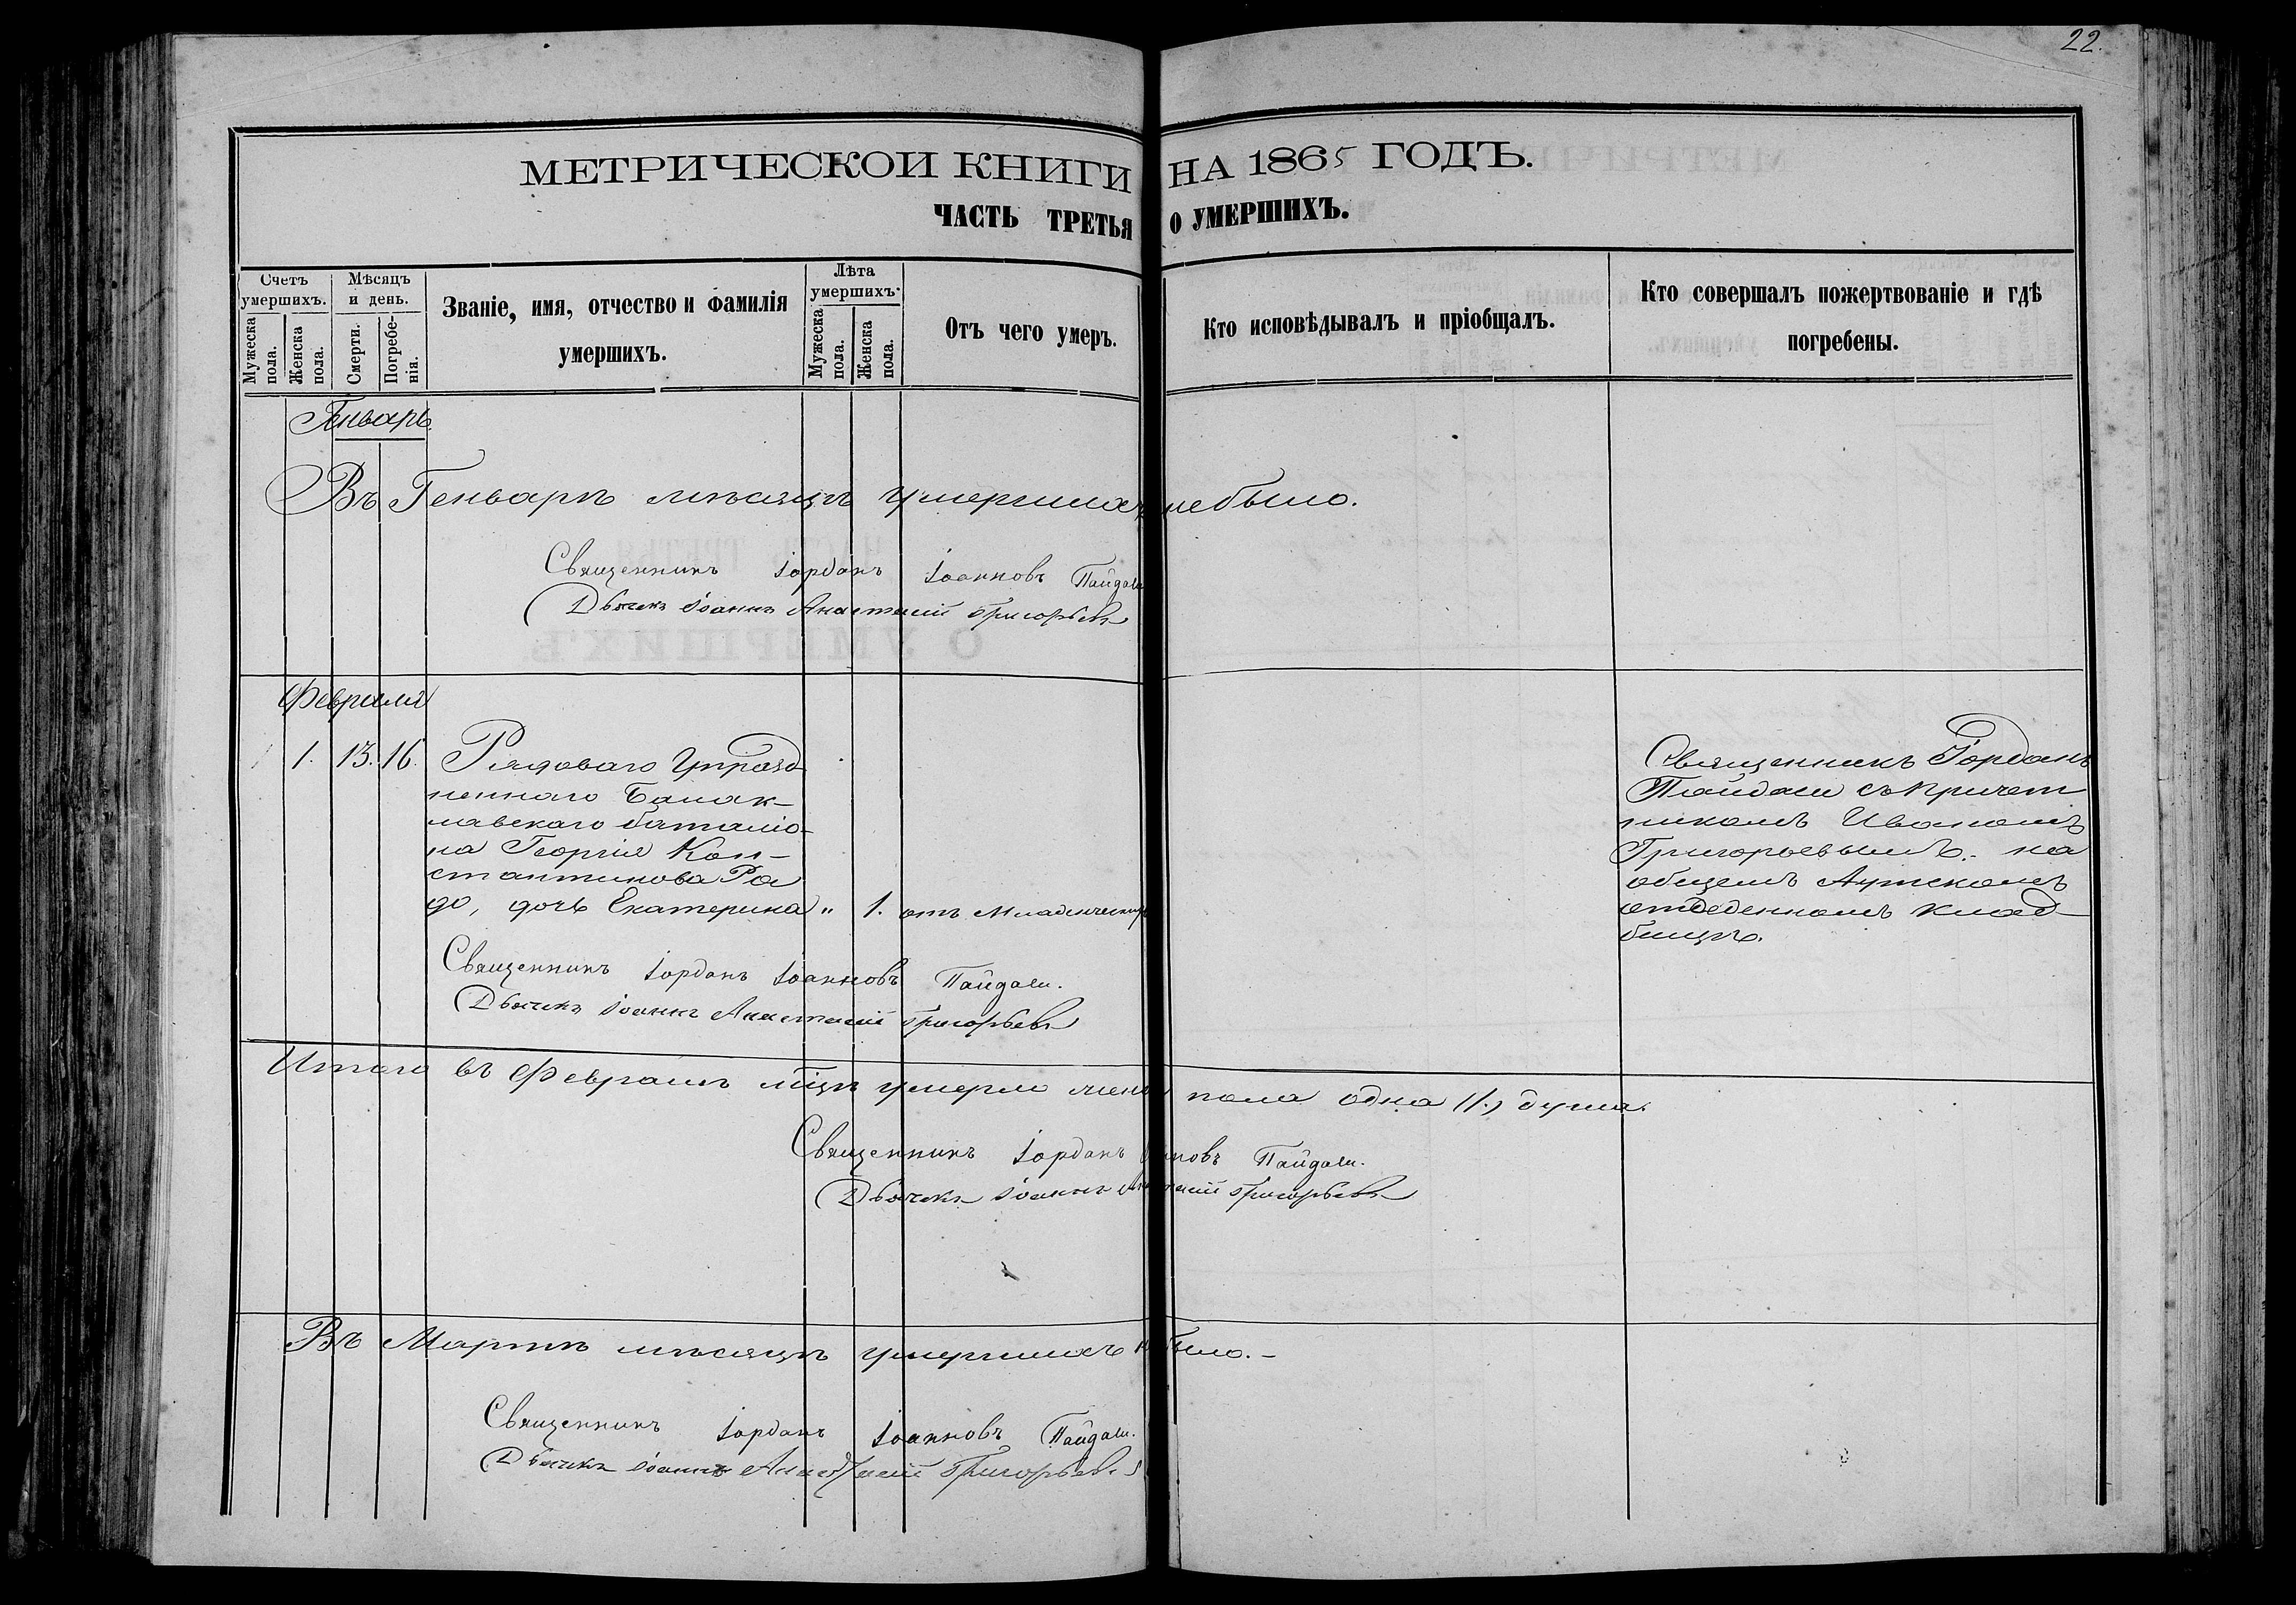 22.
МЕТРИЧЕСКОЙ КНИГИ НА 1865 ГОДЪ.
ЧАСТЬ ТРЕТЬЯ О УМЕРШИХЪ.
Счетъ умершихъ.
Мужеска пола.
Женска пола.
Мѣсяцъ и день.
Смерти.
Погребенія.
Званіе, имя, отчество и фамилія
умершихъ.
Лѣта умершихъ.
Мужеска пола.
Женска пола.
Отъ чего умеръ.
Кто исповѣдывалъ и пріобщалъ.
Кто совершалъ пожертвованіе и гдѣ
погребены.
Генварь.
Въ Генварѣ мѣсяцѣ умершихъ небыло.
Священникъ Іорданъ Іоанновъ Пайдали
Дьячекъ Іоаннъ Анастасій Григорьевъ
Февраля
1. 13. 16.
Рядоваго Упразд
неннаго Балак-
лавскаго баталіо-
на Георгія Кон-
стантинова Ра
до, дочь Екатерина " 1. отъ Младенческ
Священникъ Іорданъ
Пайдали съ Причет
никомъ Иваномъ
Григорьевымъ. на
общемъ Аутскомъ
отведенномъ клад-
бищѣ.
Священникъ Іорданъ Іоанновъ Пайдали.
Дьячекъ Іоаннъ Анастасій Григорьевъ
Итого въ Февралѣ м͠цѣ умерло женс пола одна (1.) душа.
Священникъ Іорданъ новъ Пайдали.
Дьячекъ Іоаннъ Григорьевъ
Въ Мартѣ мѣсяцѣ умершихъ небыло.-
Священникъ Іорданъ Іоанновъ Пайдали.
Дьячекъ Іоаннъ Анастасій Григорьевъ